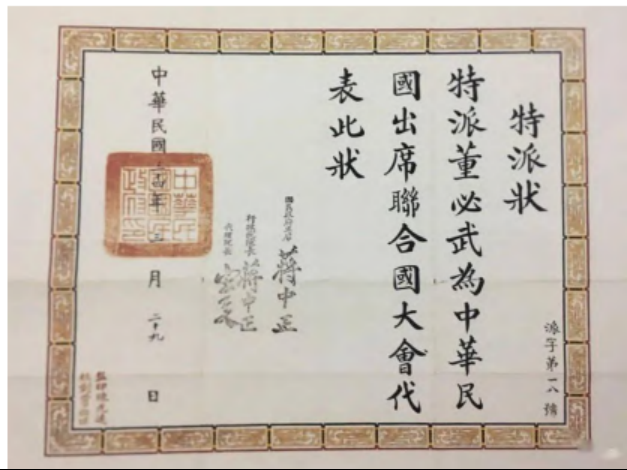 特派狀
特派董必武為中華民
國出席聯合國大會代
表此狀
國民政府主席 蔣中正
行政院院長 蔣中正
中華民國三十四年三月二十九日
派字第一八號